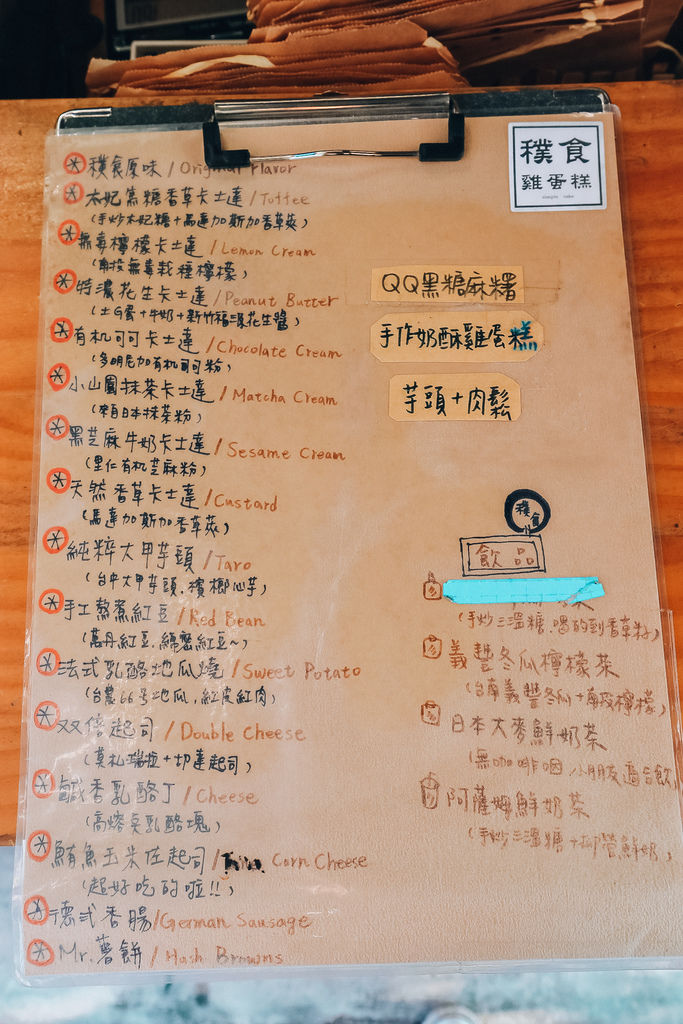 樸食原味 / Original Flavor
太妃焦糖香草卡士達 / Toffee
(手炒太妃糖+馬達加斯加香草莢)
無毒檸檬卡士達 / Lemon Cream
(南投無毒栽種檸檬)
特濃花生卡士達 / Peanut Butter
(土G蛋+牛奶+新竹福源花生醬)
有机可可卡士達 / Chocolate Cream
(多明尼加有机可可粉)
小山園抹茶卡士達 / Matcha Cream
(來自日本抹茶粉)
黑芝麻牛奶卡士達 / Sesame Cream
(里仁有机芝麻粉)
天然香草卡士達 / Custard
(馬達加斯加香草莢)
純粹大甲芋頭 / Taro
(台中大甲芋頭.檳榔心芋)
手工熬煮紅豆 / Red Bean
(萬丹紅豆.綿密紅豆~)
法式乳酪地瓜燒 / Sweet Potato
(台農66号地瓜.紅皮紅肉)
双倍起司 / Double Cheese
(莫札瑞拉+切達起司)
鹹香乳酪丁 / Cheese
(高熔臭乳酪塊)
鮪魚玉米佐起司 / Corn Cheese
(超好吃的啦!!)
德式香腸/German Sausage
Mr.薯餅 / Hash Browns
樸食
雞蛋糕
QQ黑糖麻糬
手作奶酥雞蛋糕
芋頭+肉鬆
樸食
飲品
(手炒三溫糖.喝的到香草籽)
義豐冬瓜檸檬茶
(台南義豐冬瓜+南投檸檬)
日本大麥鮮奶茶
(無咖啡因.小朋友適合飲)
阿薩姆鮮奶茶
(手炒三溫糖+柳營鮮奶)